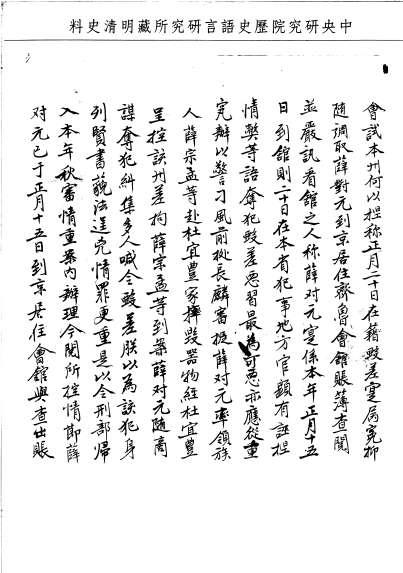 中央研究院歷史語言研究所藏明清史料
會試本州何以捏称正月二十日在藉毆差寔属冤抑
随調取薛對元到京居住齊魯會舘賬薄查閱
並嚴訊看舘之人称薛对元寔係本年正月十五
日到舘則二十日在本省犯事地方官顯有誣捏
情獘等語奪犯毆差惡習最為可惡亦應從重
究辦以警刁風前據長麟審擬薛对元率領族
人薛宗孟等赴杜宜豊家摔毀器物經杜宜豊
呈控該州差拘薛宗孟等到案薛对元随商
謀奪犯糾集多人喊令毆差朕以為該犯身
列賢書藐法逞兇情罪更重是以令刑部歸
入本年秋審情重案內辦理今閱所控情節薛
对元已于正月十五日到京居住會舘與查出賬